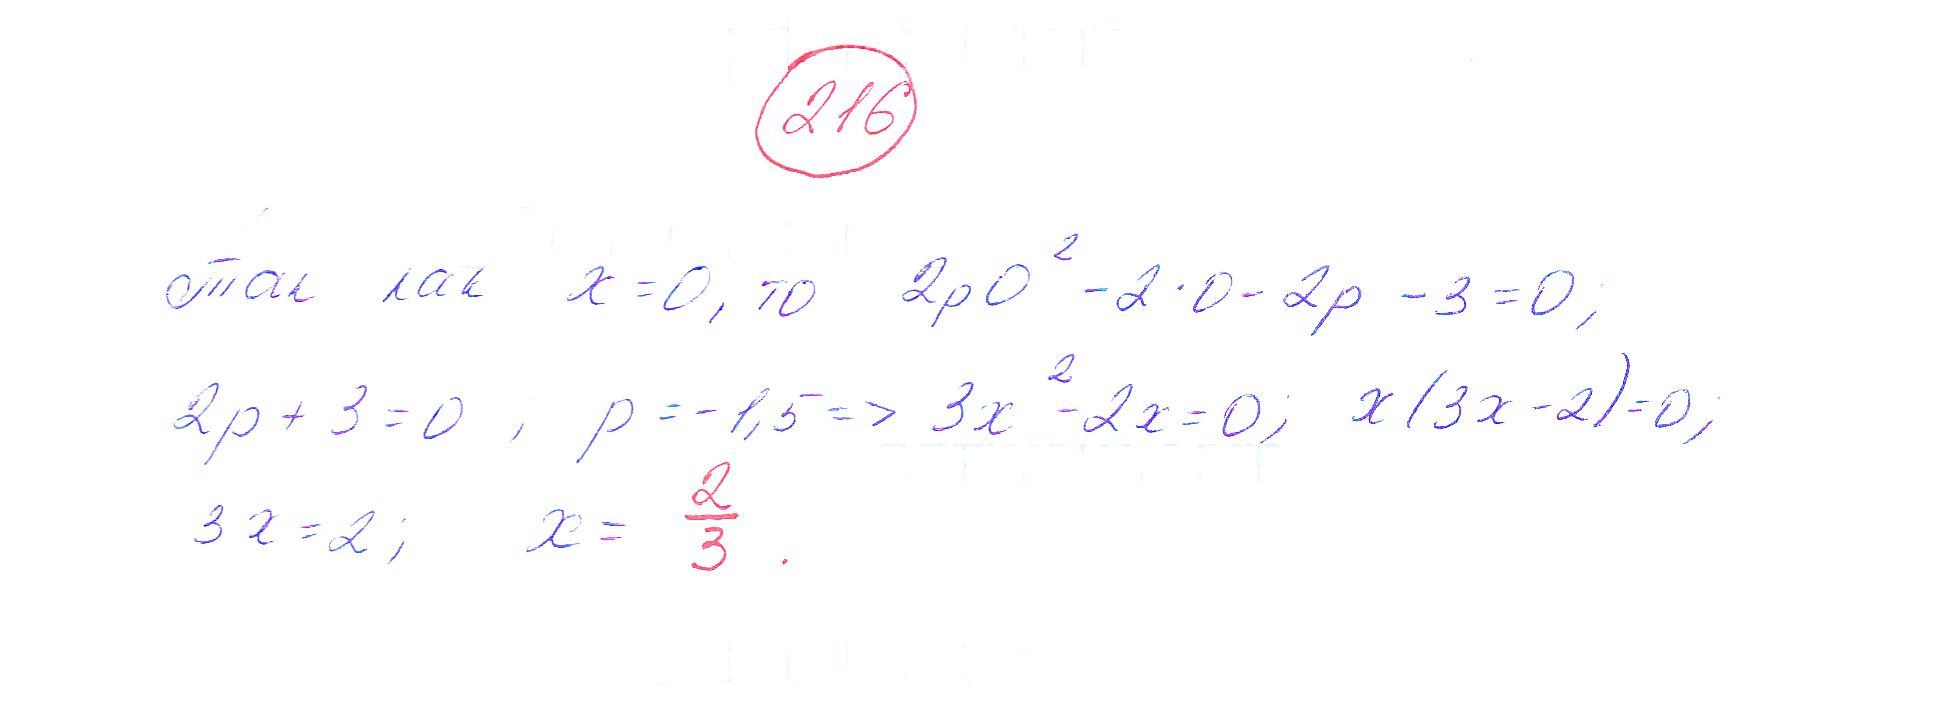 216
так как x=0, то 2p0² -2·0-2p-3=0;
2p+3=0; p=-1,5=> 3x²-2x=0; x(3x-2)=0;
3x=2; x= 2/3.